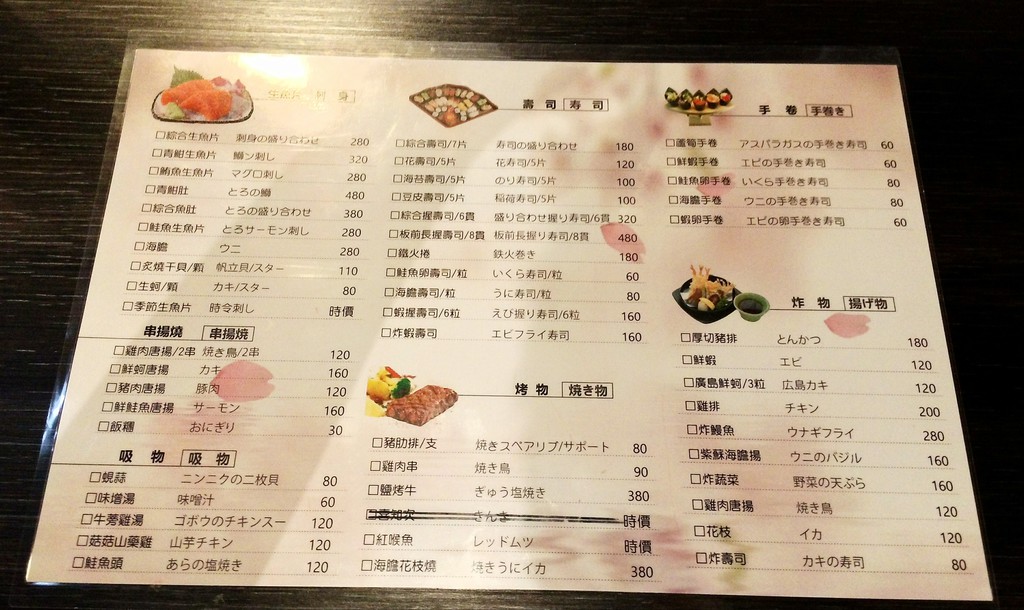 生魚片 刺身
□綜合生魚片 刺身の盛り合わせ 280
□青魽生魚片 鰤ン刺し 320
□鮪魚生魚片 マグロ刺し 280
□青魽肚 とろの鰤 480
□綜合魚肚 とろの盛り合わせ 380
□鮭魚生魚片 とろサーモン刺し 280
□海膽 ウニ 280
□炙燒干貝/顆 帆立貝/スター 110
□生蚵/顆 カキ/スター 80
□季節生魚片 時令刺し 時價
串揚燒 串揚焼
□雞肉唐揚/2串 焼き鳥/2串 120
□鮮蚵唐揚 カキ 160
□豬肉唐揚 豚肉 120
□鮮鮭魚唐揚 サーモン 160
□飯糰 おにぎり 30
吸物 吸物
□蜆蒜 ニンニクの二枚貝 80
□味增湯 味噌汁 60
□牛蒡雞湯 ゴボウのチキンスー 120
□菇菇山藥雞 山芋チキン 120
□鮭魚頭 あらの塩焼き 120
壽司 寿司
□綜合壽司/7片 寿司の盛り合わせ 180
□花壽司/5片 花寿司/5片 120
□海苔壽司/5片 のり寿司/5片 100
□豆皮壽司/5片 稲荷寿司/5片 100
□綜合握壽司/6貫 盛り合わせ握り寿司/6貫 320
□板前長握壽司/8貫 板前握り寿司/8貫 480
□鐵火捲 鉄火巻き 180
□鮭魚卵壽司/粒 いくら寿司/粒 60
□海膽壽司/粒 うに寿司/粒 80
□蝦握壽司/6粒 えび握り寿司/6粒 160
□炸蝦壽司 エビフライ寿司 160
烤物 焼き物
□豬肋排/支 焼きスペアリブ/サポート 80
□雞肉串 焼き鳥 90
□鹽烤牛 ぎゅう塩焼き 380
□喜知次 きんき 時價
□紅喉魚 レッドムツ 時價
□海膽花枝燒 焼きうにイカ 380
手卷 手巻き
□蘆筍手卷 アスパラガスの手巻き寿司 60
□鮮蝦手卷 エビの手巻き寿司 60
□鮭魚卵手卷 いくら手巻き寿司 80
□海膽手卷 ウニの手巻き寿司 80
□蝦卵手卷 エビの卵手巻き寿司 60
炸物 揚げ物
□厚切豬排 とんかつ 180
□鮮蝦 エビ 120
□廣島鮮蚵/3粒 広島カキ 120
□雞排 チキン 200
□炸鰻魚 ウナギフライ 280
□紫蘇海膽揚 ウニのバジル 160
□炸蔬菜 野菜の天ぷら 160
□雞肉唐揚 焼き鳥 120
□花枝 イカ 120
□炸壽司 カキの寿司 80